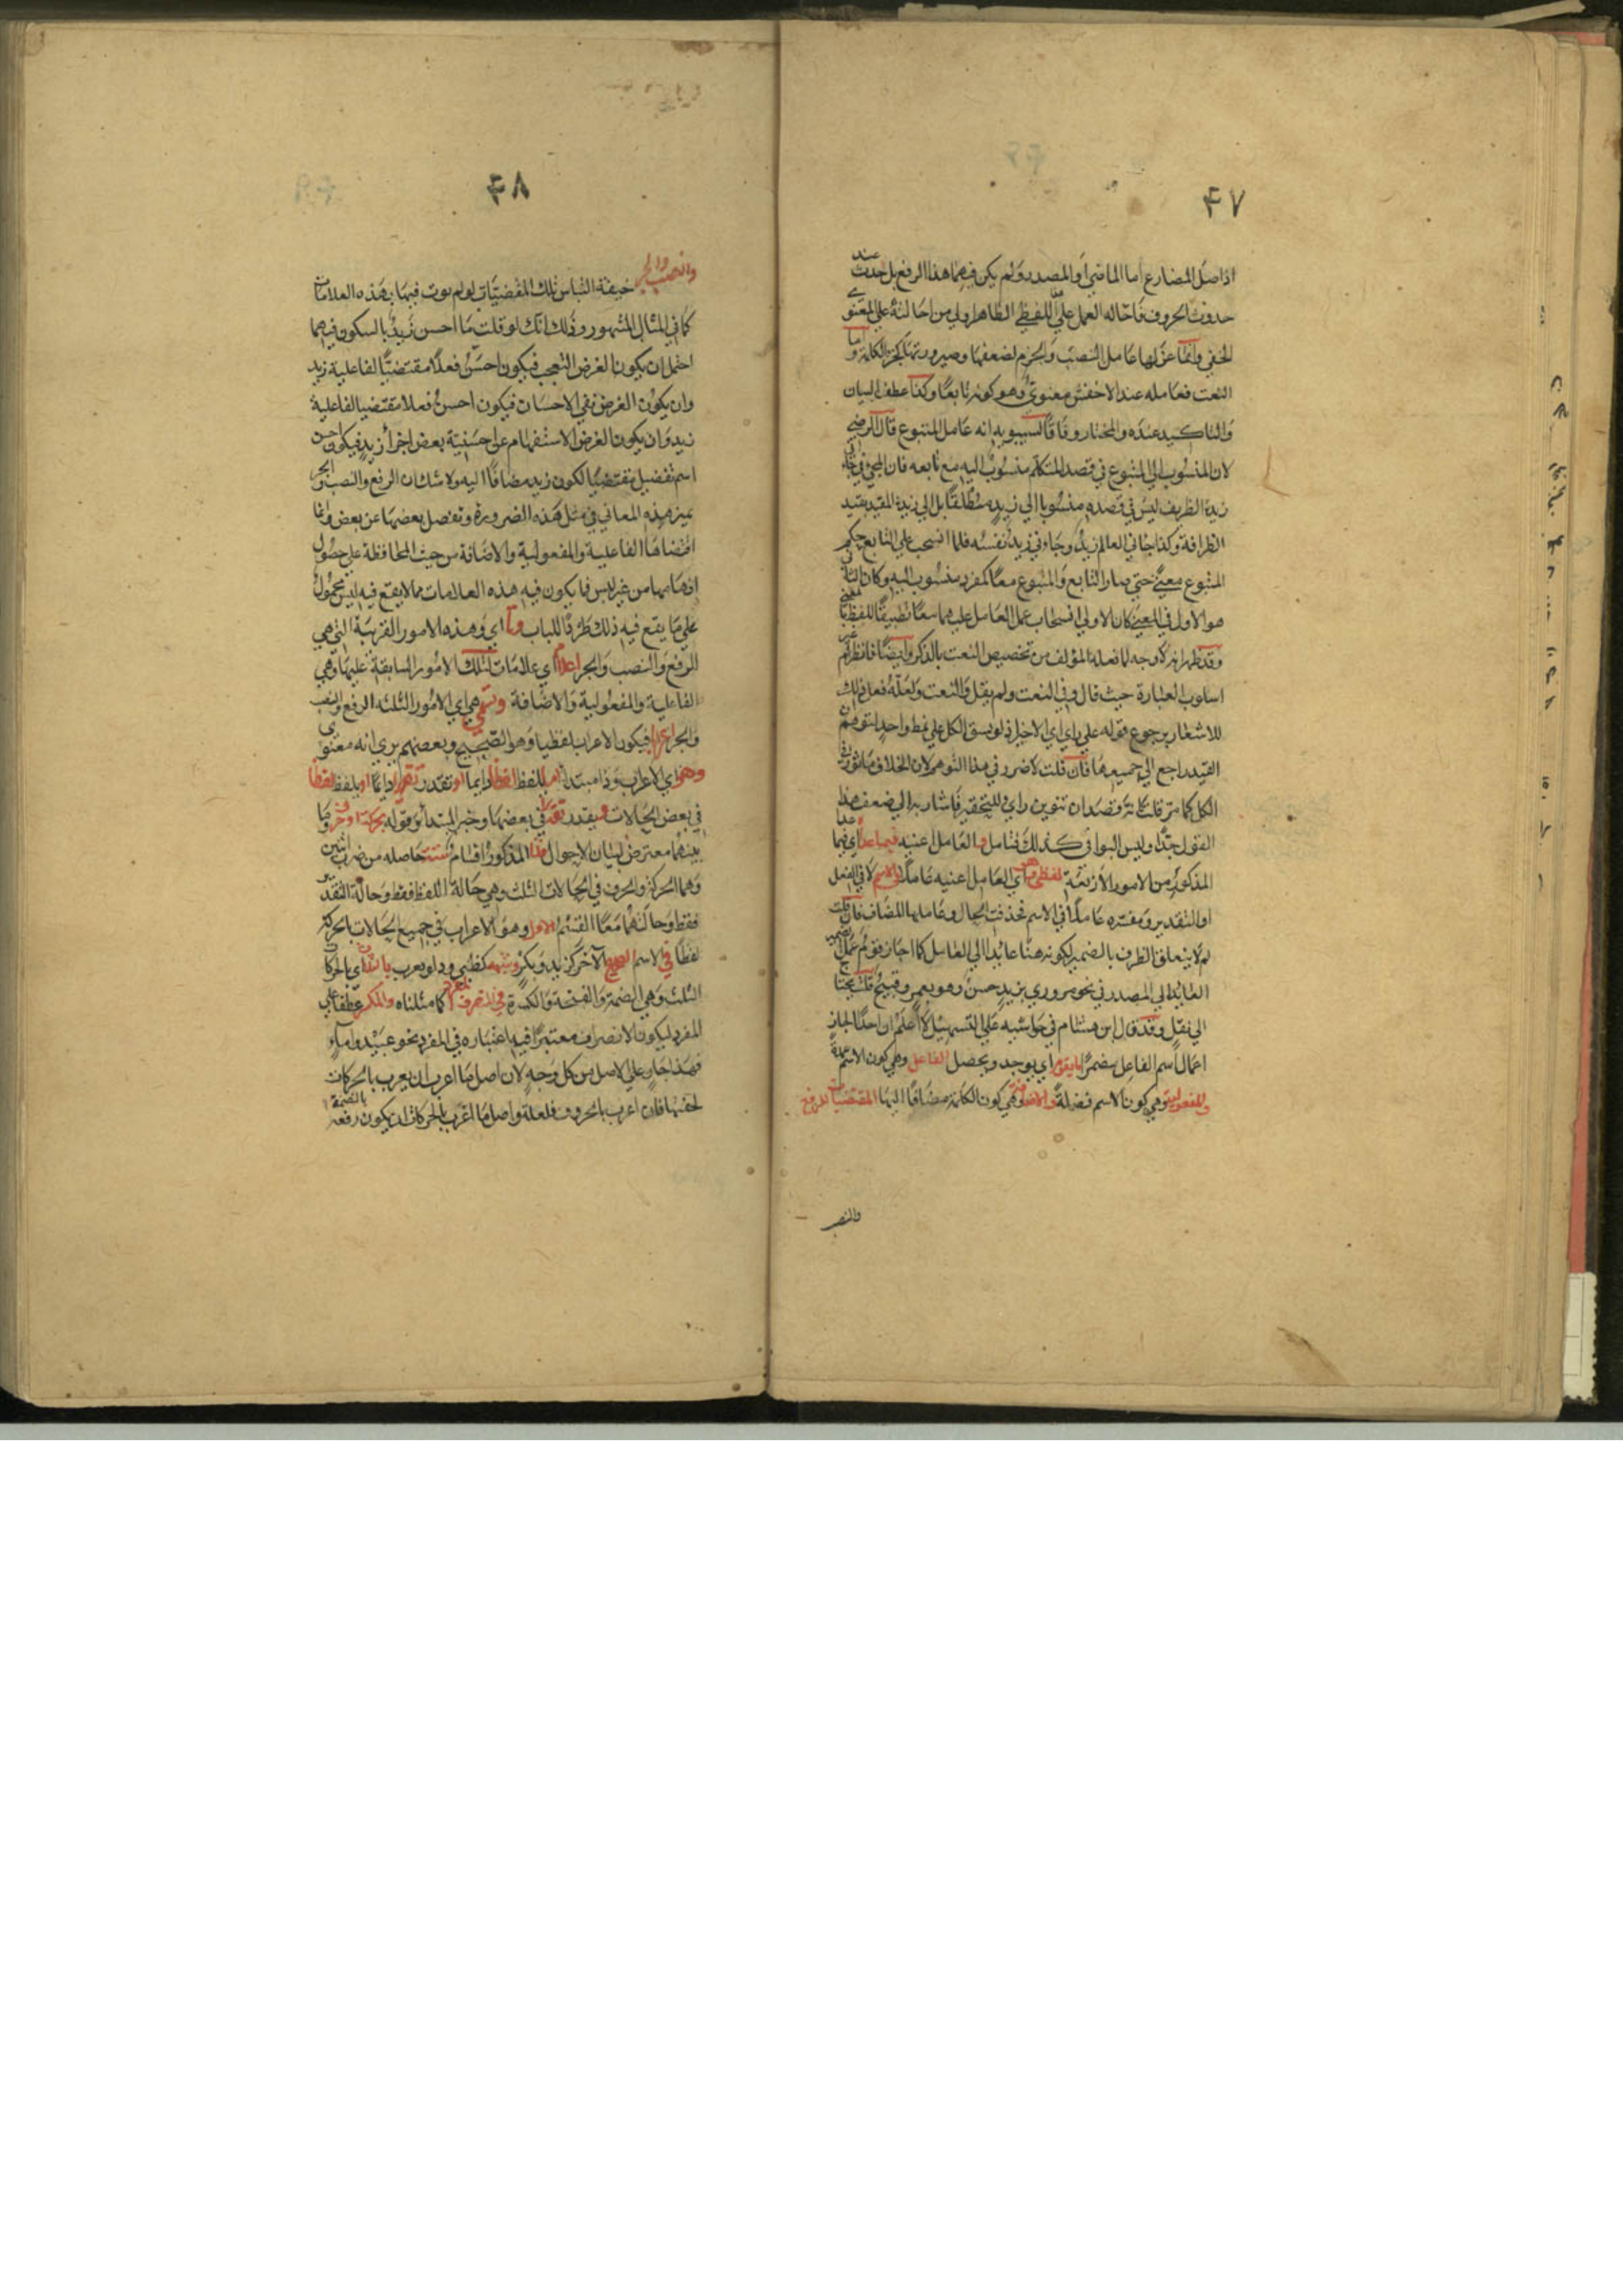 ٤٧
اذ اصل المضارع اما الماضي او المصدر ولم يكن فيهما هذا الرفع بل حدث عند
حدوث الحروف فاحاله العمل على اللفظي الظاهر اولى من احالته على المعنوي
الخفي وانما عزلها عامل النصب والجزم لضعفها وصيرورتها كجزء الكلمة واما
النعت فعامله عند الاخفش معنوي وهو كونه تابعا وكذا عطف البيان
والتاكيد عنده والمختار وفاقا لسيبويه انه عامل المتبوع قال الرضي
لان المنسوب الى المتبوع في قصد المتكلم منسوب اليه مع تابعه فان المجئ في جاءني
زيد الظريف ليس في قصده منسوبا الى زيد مطلقا بل الى زيد المقيد بقيد
الظرافة وكذا جاءني العالم زيد وجاءني زيد نفسه فلما انسحب على التابع حكم
المتبوع معنى حتى صار التابع والمتبوع معا كمفرد منسوب اليه وكان الثاني
هو الاول في المعنى كان الاولى انسحاب عمل العامل عليهما معا تطبيقا للفظ بالمعنى
وقد ظهر انه لا وجه لما فعله المؤلف من تخصيص النعت بالذكر وايضا فانظر لم غير
اسلوب العبارة حيث قال وفي النعت ولم يقل والنعت ولعله فعل ذلك
للاشعار برجوع قوله على راي اي الاخير اذ لو نسق الكل على نمط واحد لتوهم ان
القيد راجع الى جميعها فان قلت لا ضرر في هذا التوهم لان الخلاف ماثور في
الكل كما مر قلت كانه قصد ان تنوين راي للتحقير فاشار به الى ضعف هذا
القول جدا وليس البواقي كذلك فتامل والعامل اعنيه فيما عدا اي فيما عدا
المذكور من الامور الاربعة لفظي هو اي العامل اعنيه عاملا في الاسم لا في الفعل
او التقدير ومفسره عاملا في الاسم فحذفت الحال وعاملها المضاف فان قلت
لم لا يتعلق الظرف بالضمير لكونه هنا عائدا الى العامل كما اجاز قوم عمل الضمير
العائد الى المصدر في نحو مروري بزيد حسن وهو بعمرو قبيح قلت يحتاج
الى نقل وقد قال ابن هشام في حواشيه على التسهيل لا اعلم ان احدا اجاز
اعمال اسم الفاعل مضمرا ما يقوم اي يوجد ويحصل الفاعل وهي كون الاسم عمدة
والمفعولية وهي كون الاسم فضلة والاضافة وهي كون الكلمة مضافا اليها المقتضيات للرفع
والنصب
٤٨
والنصب والجر خيفة التباس تلك المقتضيات لو لم يوت فيها بهذه العلامات
كما في المثال المشهور وذلك انك لو قلت ما احسن زيد بالسكون فيهما
احتمل ان يكون الغرض التعجب فيكون احسن فعلا مقتضيا لفاعلية زيد
وان يكون الغرض نفي الاحسان فيكون احسن فعلا مقتضيا لفاعلية
زيد وان يكون الغرض الاستفهام على حسنية بعض اجزأ زيد فيكون احسن
اسم تفضيل مقتضيا لكون زيد مضافا اليه ولا شك ان الرفع والنصب والجر
تميز هذه المعاني في مثل هذه الضرورة وتفصل بعضها عن بعض وانما
اقتضاها الفاعلية والمفعولية والاضافة من حيث المحافظة على حصول
افهامها من غير لبس فما يكون فيه هذه العلامات مما لا يقع فيه لبس محمول
على ما يقع فيه ذلك طردا للباب وهذه اي وهذه الامور القريبة التي هي
الرفع والنصب والجر اعلام اي علامات لتلك الامور السابقة عليها وهي
الفاعلية والمفعولية والاضافة وتسمى هي اي الامور الثلثه الرفع والنصب
والجر اعرابا فيكون الاعراب لفظيا وهو الصحيح وبعضهم يرى انه معنوي
وهو اي الاعراب وذا مبتدا اما بلفظ لفظا دايما او تقدر تقديرا دايما او بلفظ لفظا
في بعض الحالات ويقدر تقديرا في بعضها وخبر المبتدأ وقوله بحركة او حرف وما
بينهما معترض لبيان الاحوال فذا المذكور اقسام ستة حاصله من ضرب اثنين
وهما الحركة والحرف في الحالات الثلث وهي حالة اللفظ فقط وحالة التقدير
فقط وحالتهما معا القسم الاول وهو الاعراب في جميع الحالات بالحركة
لفظا في الاسم الصحيح الآخر كزيد وبكر وشبهه كظبي ودلو يعرب بالثلاث اي بالحركات
الثلث وهي الضمة والفتحة والكسرة في المفرد المنصرف كما مثلناه والمكسر عطفا على
المفرد ليكون الانصراف معتبرا فيه اعتباره في المفرد نحو عبيد واماء
فهذا جار على الاصل من كل وجه لان اصل ما اعرب ان يعرب بالحركات
لخفتها فان اعرب بالحروف فلعلة واصل ما اعرب بالحركات ان يكون رفعه بالضمة